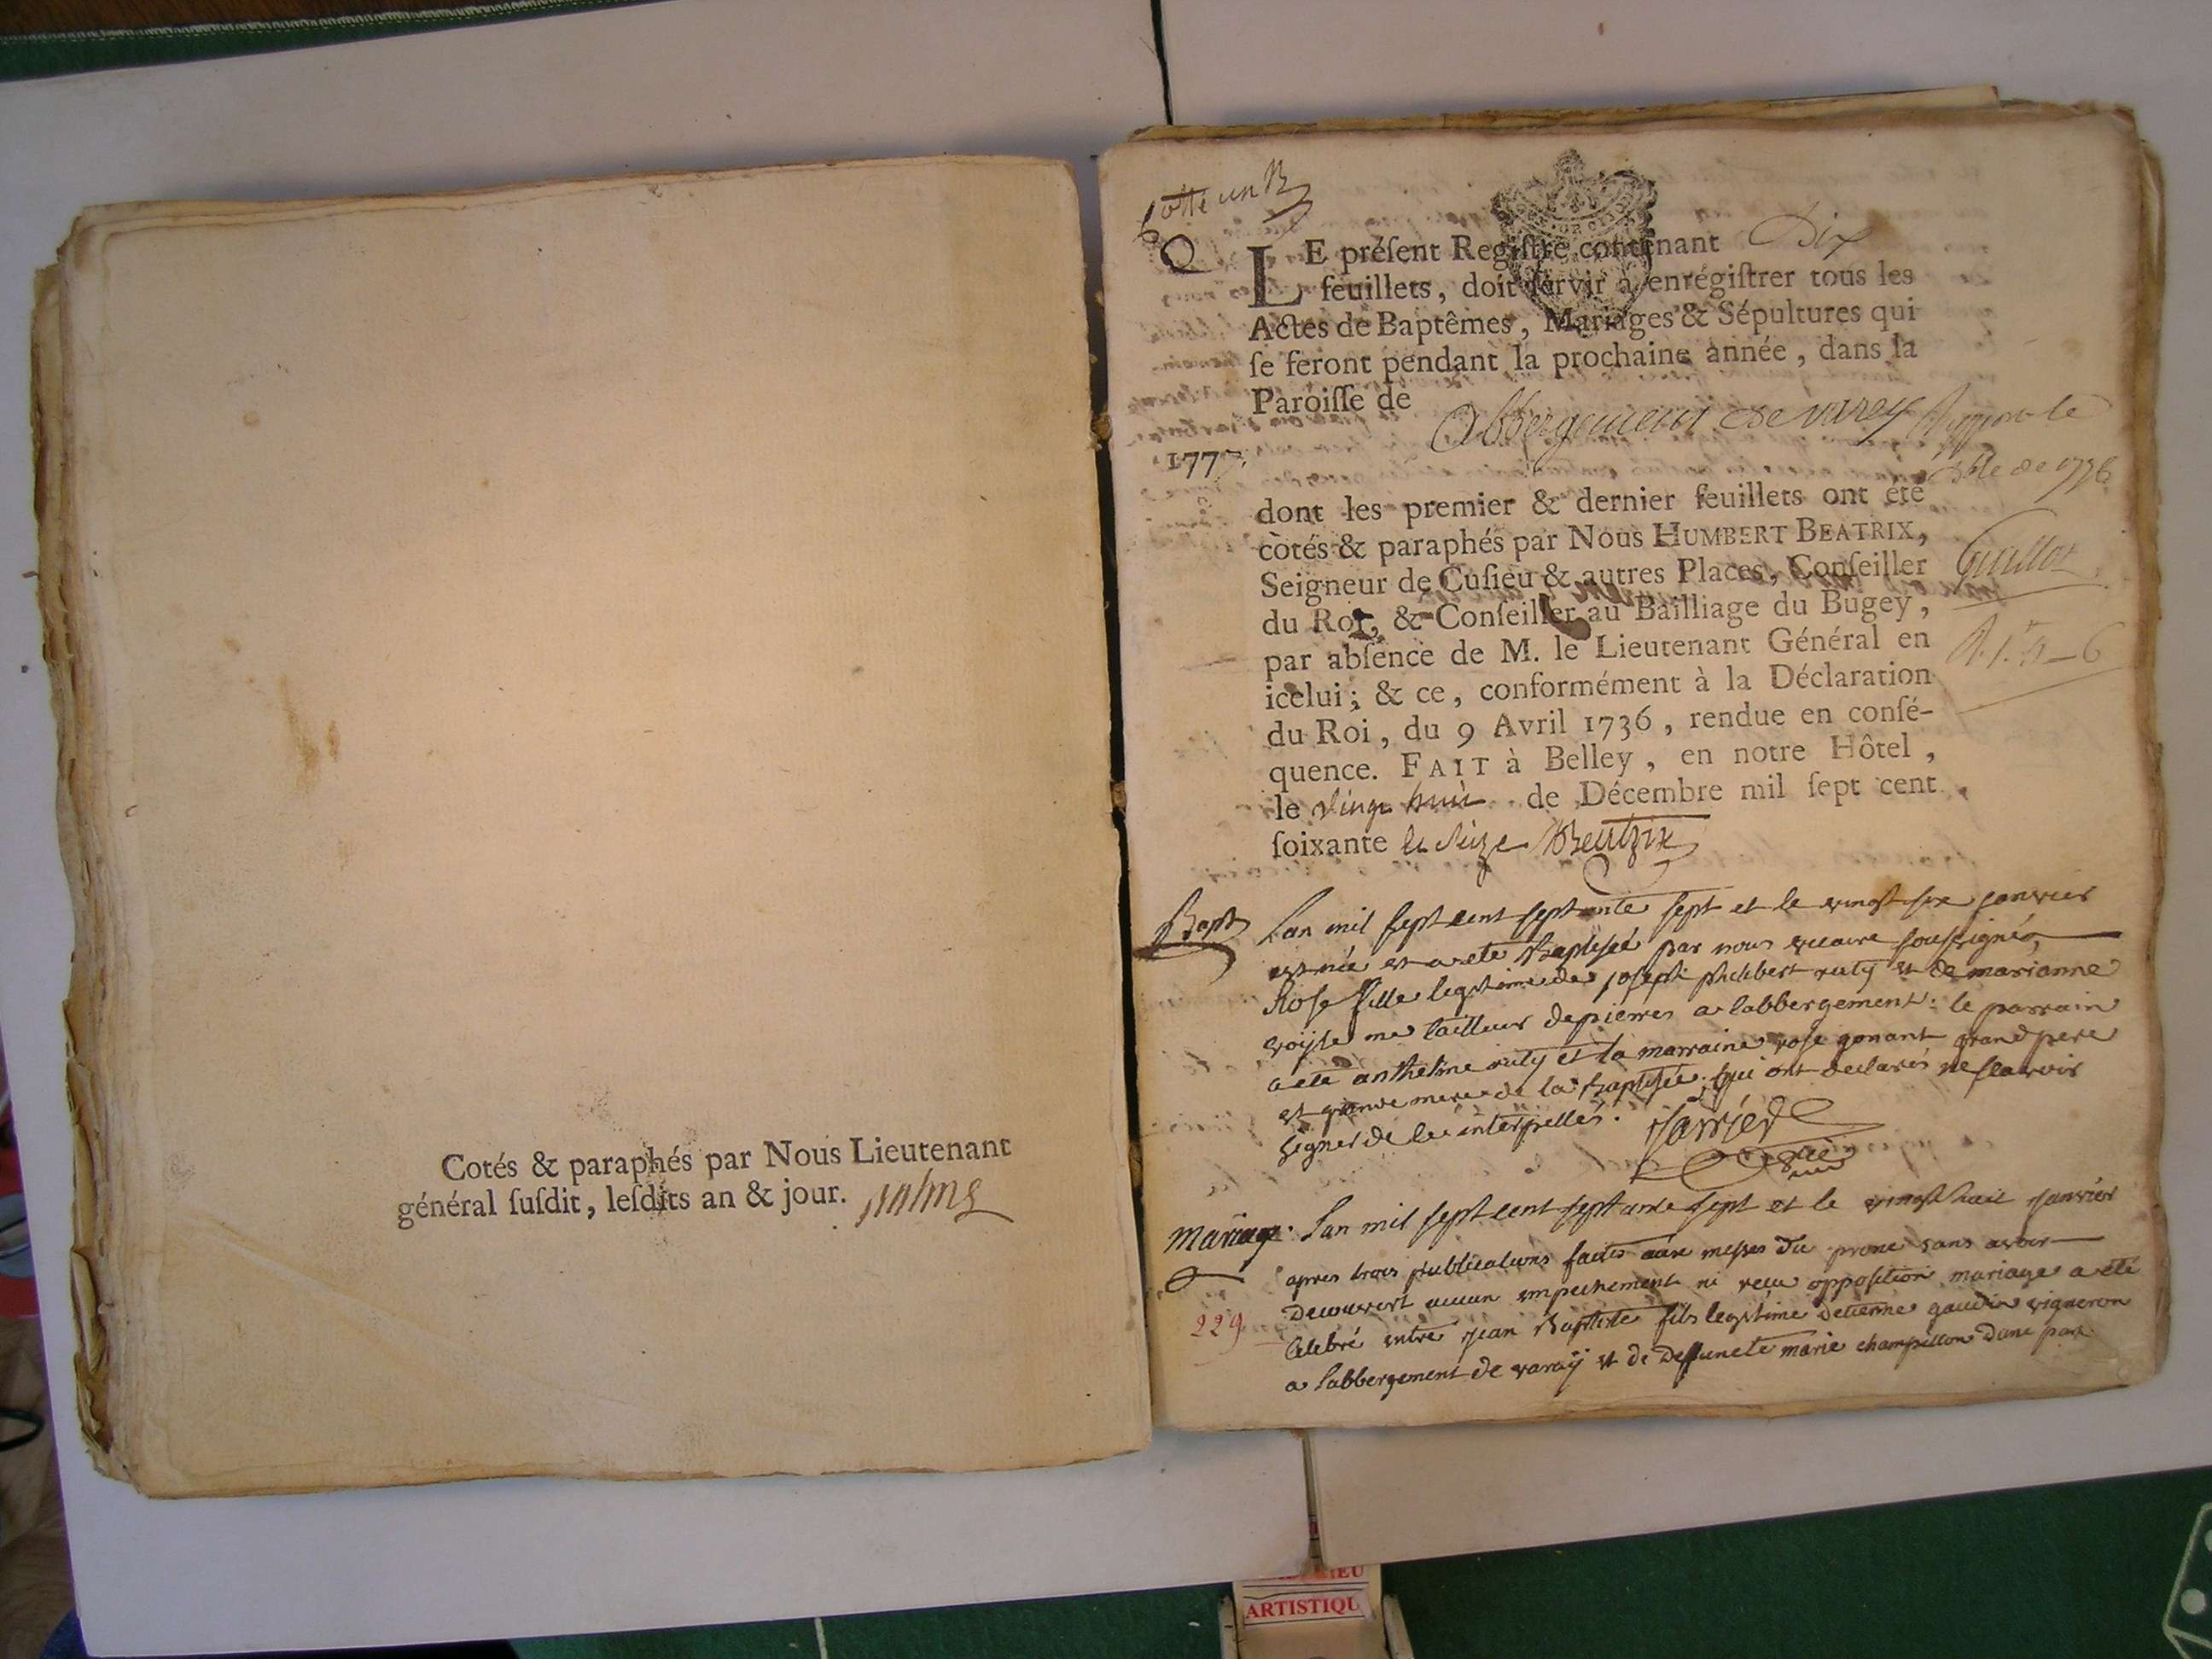 Cotés & paraphés par Nous Lieutenant
général ſuſdit, leſdits an & jour.
Cotte un B
LE préſent Regiſtre contenant Dix
feuillets, doit ſervir à enrégiſtrer tous les
Actes de Baptêmes, Mariages & Sépultures qui
ſe feront pendant la prochaine année, dans la
Paroiſſe de Abbergement de varey
1777.
dont les premier & dernier feuillets ont été
cotés & paraphés par Nous HUMBERT BEATRIX,
Seigneur de Cuſieu & autres Places, Conſeiller
du Roi, & Conſeiller au Bailliage du Bugey,
par abſence de M. le Lieutenant Général en
icelui; & ce, conformément à la Déclaration
du Roi, du 9 Avril 1736, rendue en conſé-
quence. FAIT à Belley, en notre Hôtel,
le vingt huit de Décembre mil ſept cent
ſoixante & seize Beatrix
Guillot
Bapt
Lan mil sept cent septante sept et le vingt six janvier
est née et a ete baptisée par nous vicaire soussigné,
Rose fille legitime de joseph philibert ruty et de marianne
voysle me tailleur de pierres a labbergement. le parrain
a ete anthelme ruty et la marraine rose gonant grand pere
et grande mere de la baptisée, qui ont declarés ne scavoir
signer de ce interpellés.
Mariage.
Lan mil sept cent septante sept et le vingt huit janvier
apres trois publications faites aux messes du prone sans avoir
decouvert aucun empechement ni recu opposition mariage a été
229
celebré entre jean Baptiste fils legitime detienne gaudin vigneron
a labbergement de varay et de deffuncte marie champillon dune part
ARTISTIQU